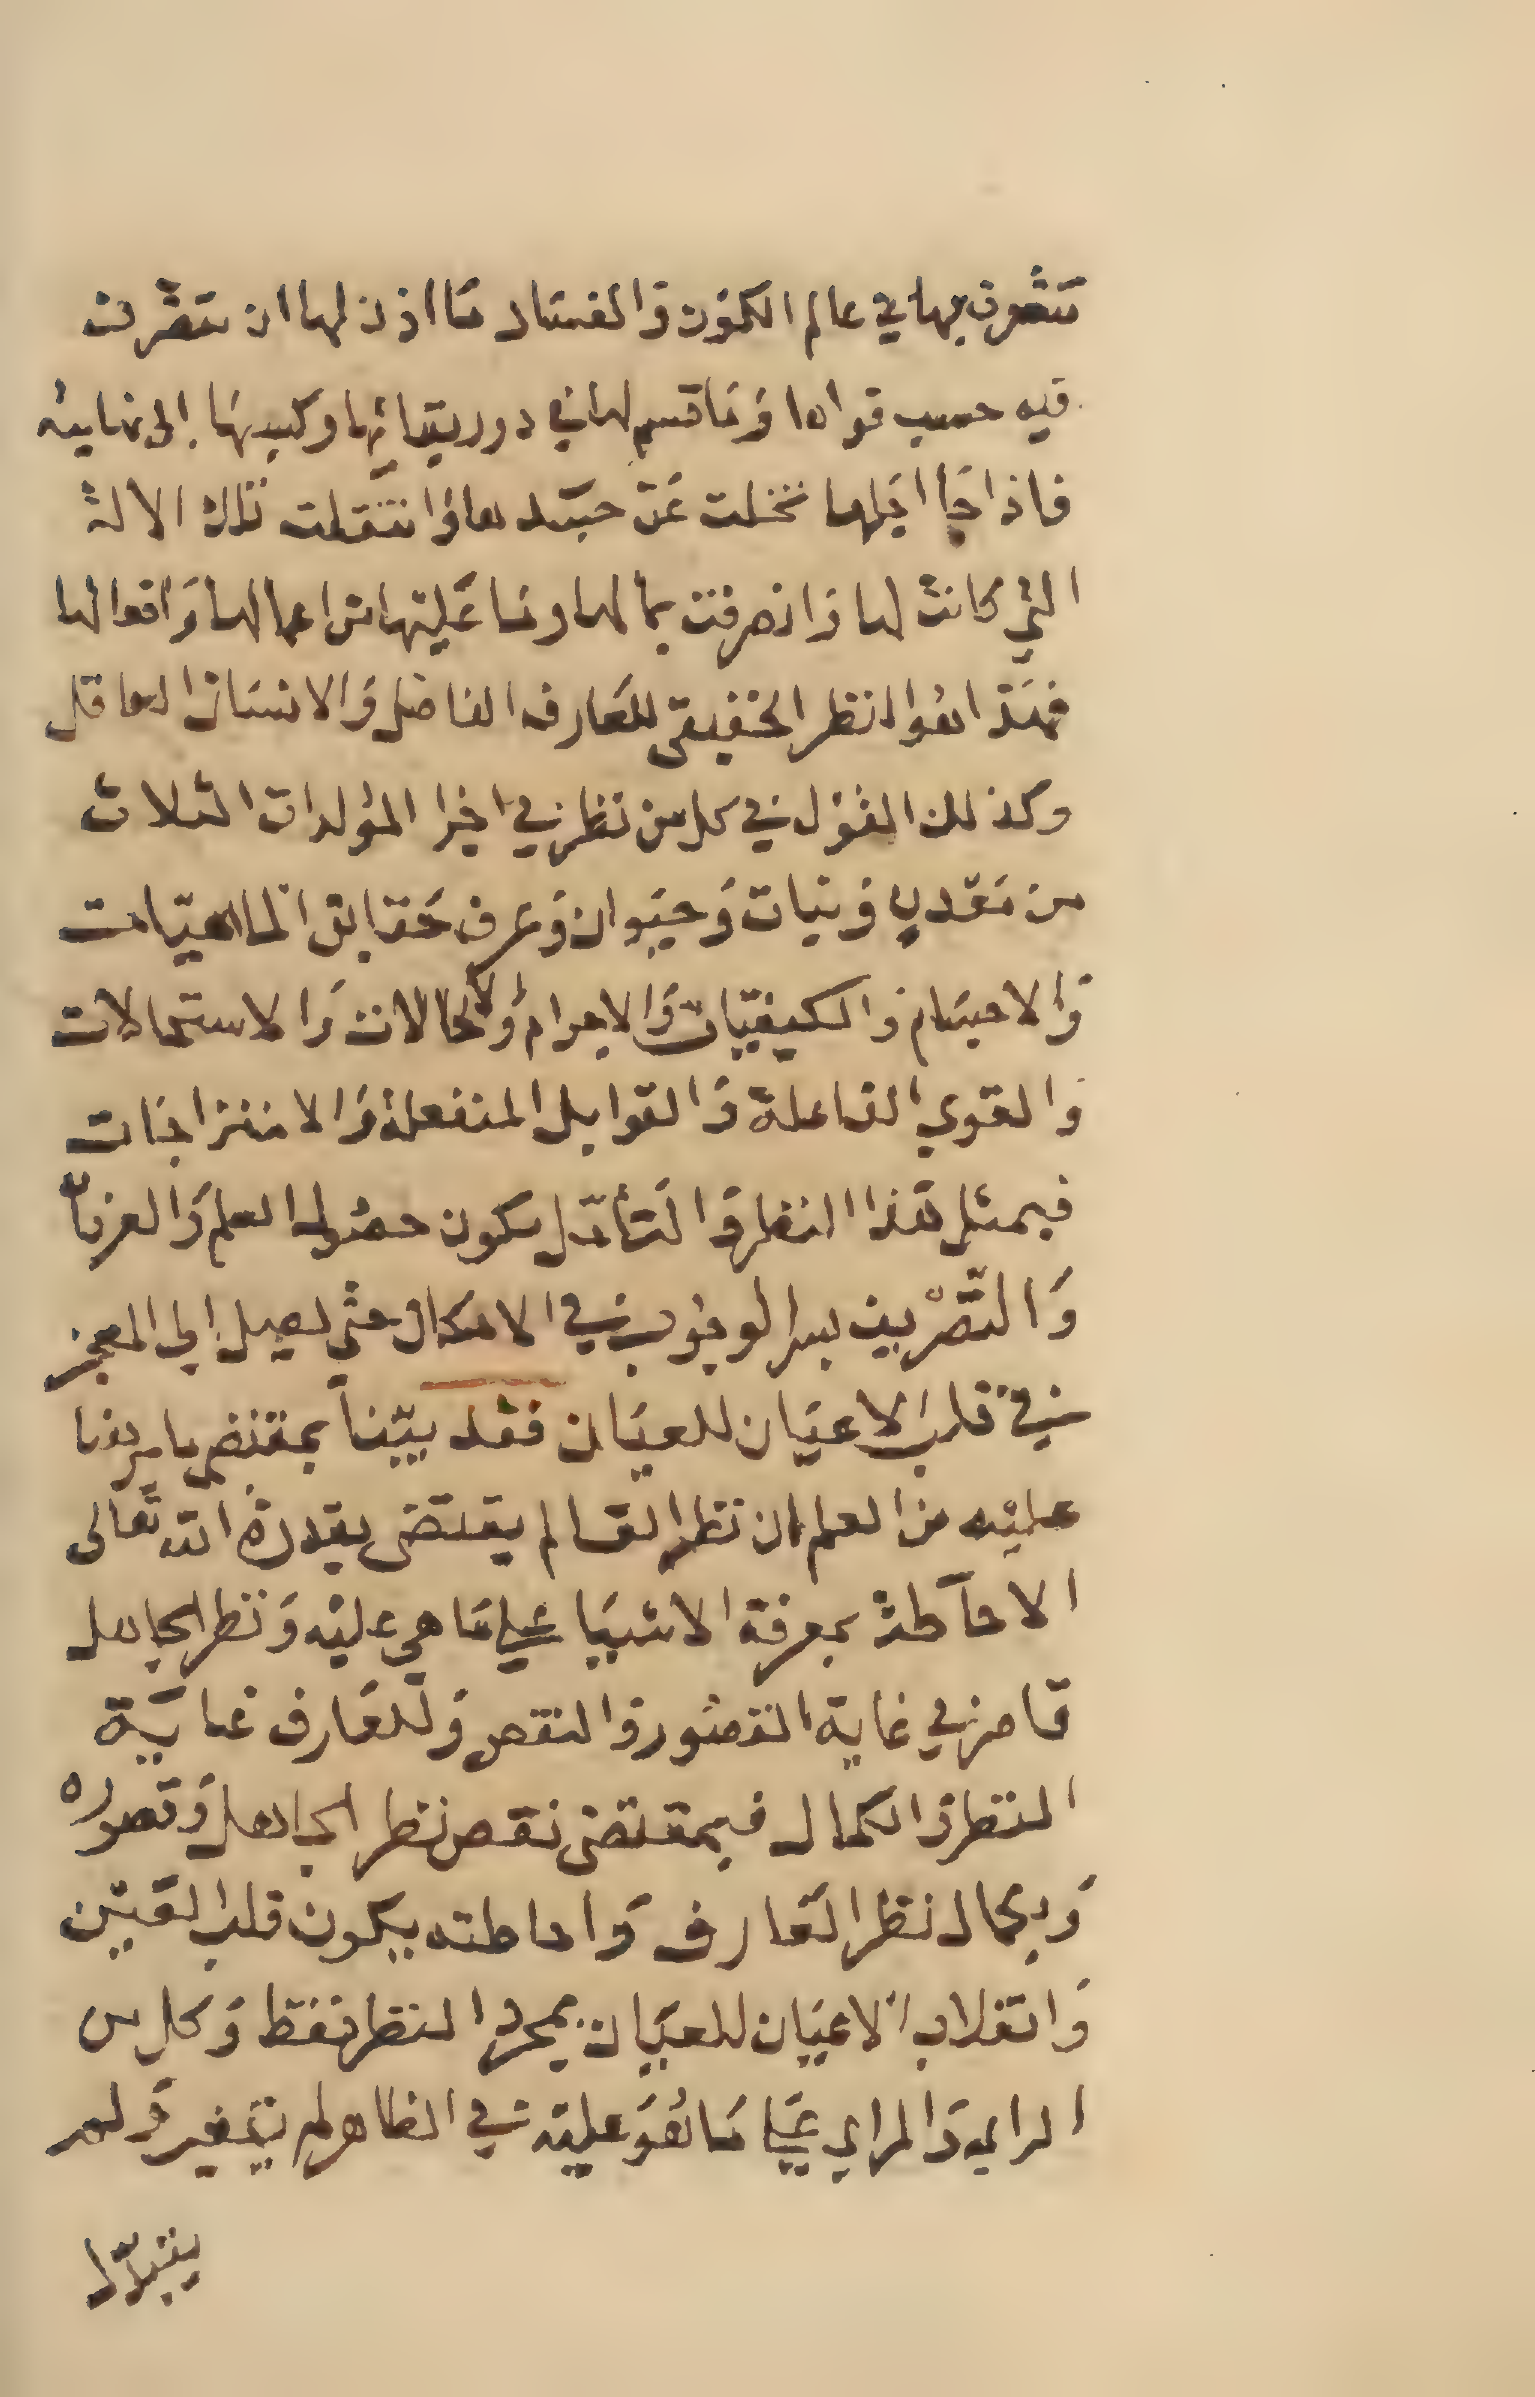 تتصرف بها في عالم الكون وَالفسَاد مَا اذن لها ان تتصَرف
فيه حسب قواها وَمَا قسم لها في دوريقائها وكبد بهَا الى نهايته
فاذا جَا اجَلها تخلت عَن جسَدها وَانتقلت تلك الالة
التي كانت لها وَانصرفت بما لها ومَا عَليها من اعمالها وَاقوالها
فهَذا هُوا لنظر الحقيقى للعَارف الفاضل وَالانسَان العاقل
وكذلك القوْل في كل من نظر في اجزا المؤلدات الثلاث
من مَعْدن وَنبات وَحيَوان وَعرف حَقايق الماهيّات
وَالاجسَام وَالكيفيّات وَالاجرام وَالحالات وَالاستحالات
وَالقوي الفاعلة وَالقوابل المنفعلة وَالامتزاجَات
فبمثل هَذا النظر وَالتأمّل يكون حصُول العلم وَالعرفان
وَالتّصْريف بسر الوجُوب في الامكان حتى يصل الى المعجز
في قلب الاعيَان للعيَان فقد بيّناً بمقتضى ما برهنا
عليْه من العلم ان نظر العَالم يقتضى بقدرة الله تعَالى
الاحَاطة بمعرفة الاشيَا على مَا هي عليْه وَنظر الجاهل
قاصر في غاية القصُور وَالنقص وَللعَارف غايَة
النظر وَالكمال فبمقتضى نقص نظر الجاهل وَقصوره
وَبكمال نظر العَارف وَاحاطته يكون قلب العَين
وَانقلاب الاعيَان للعيَان بمجرد النظر فقط وَكل من
الراي وَالمراي عَلى مَا هُوَ عليْه في الظاهر لم يتغير وَلم
يتبدّل